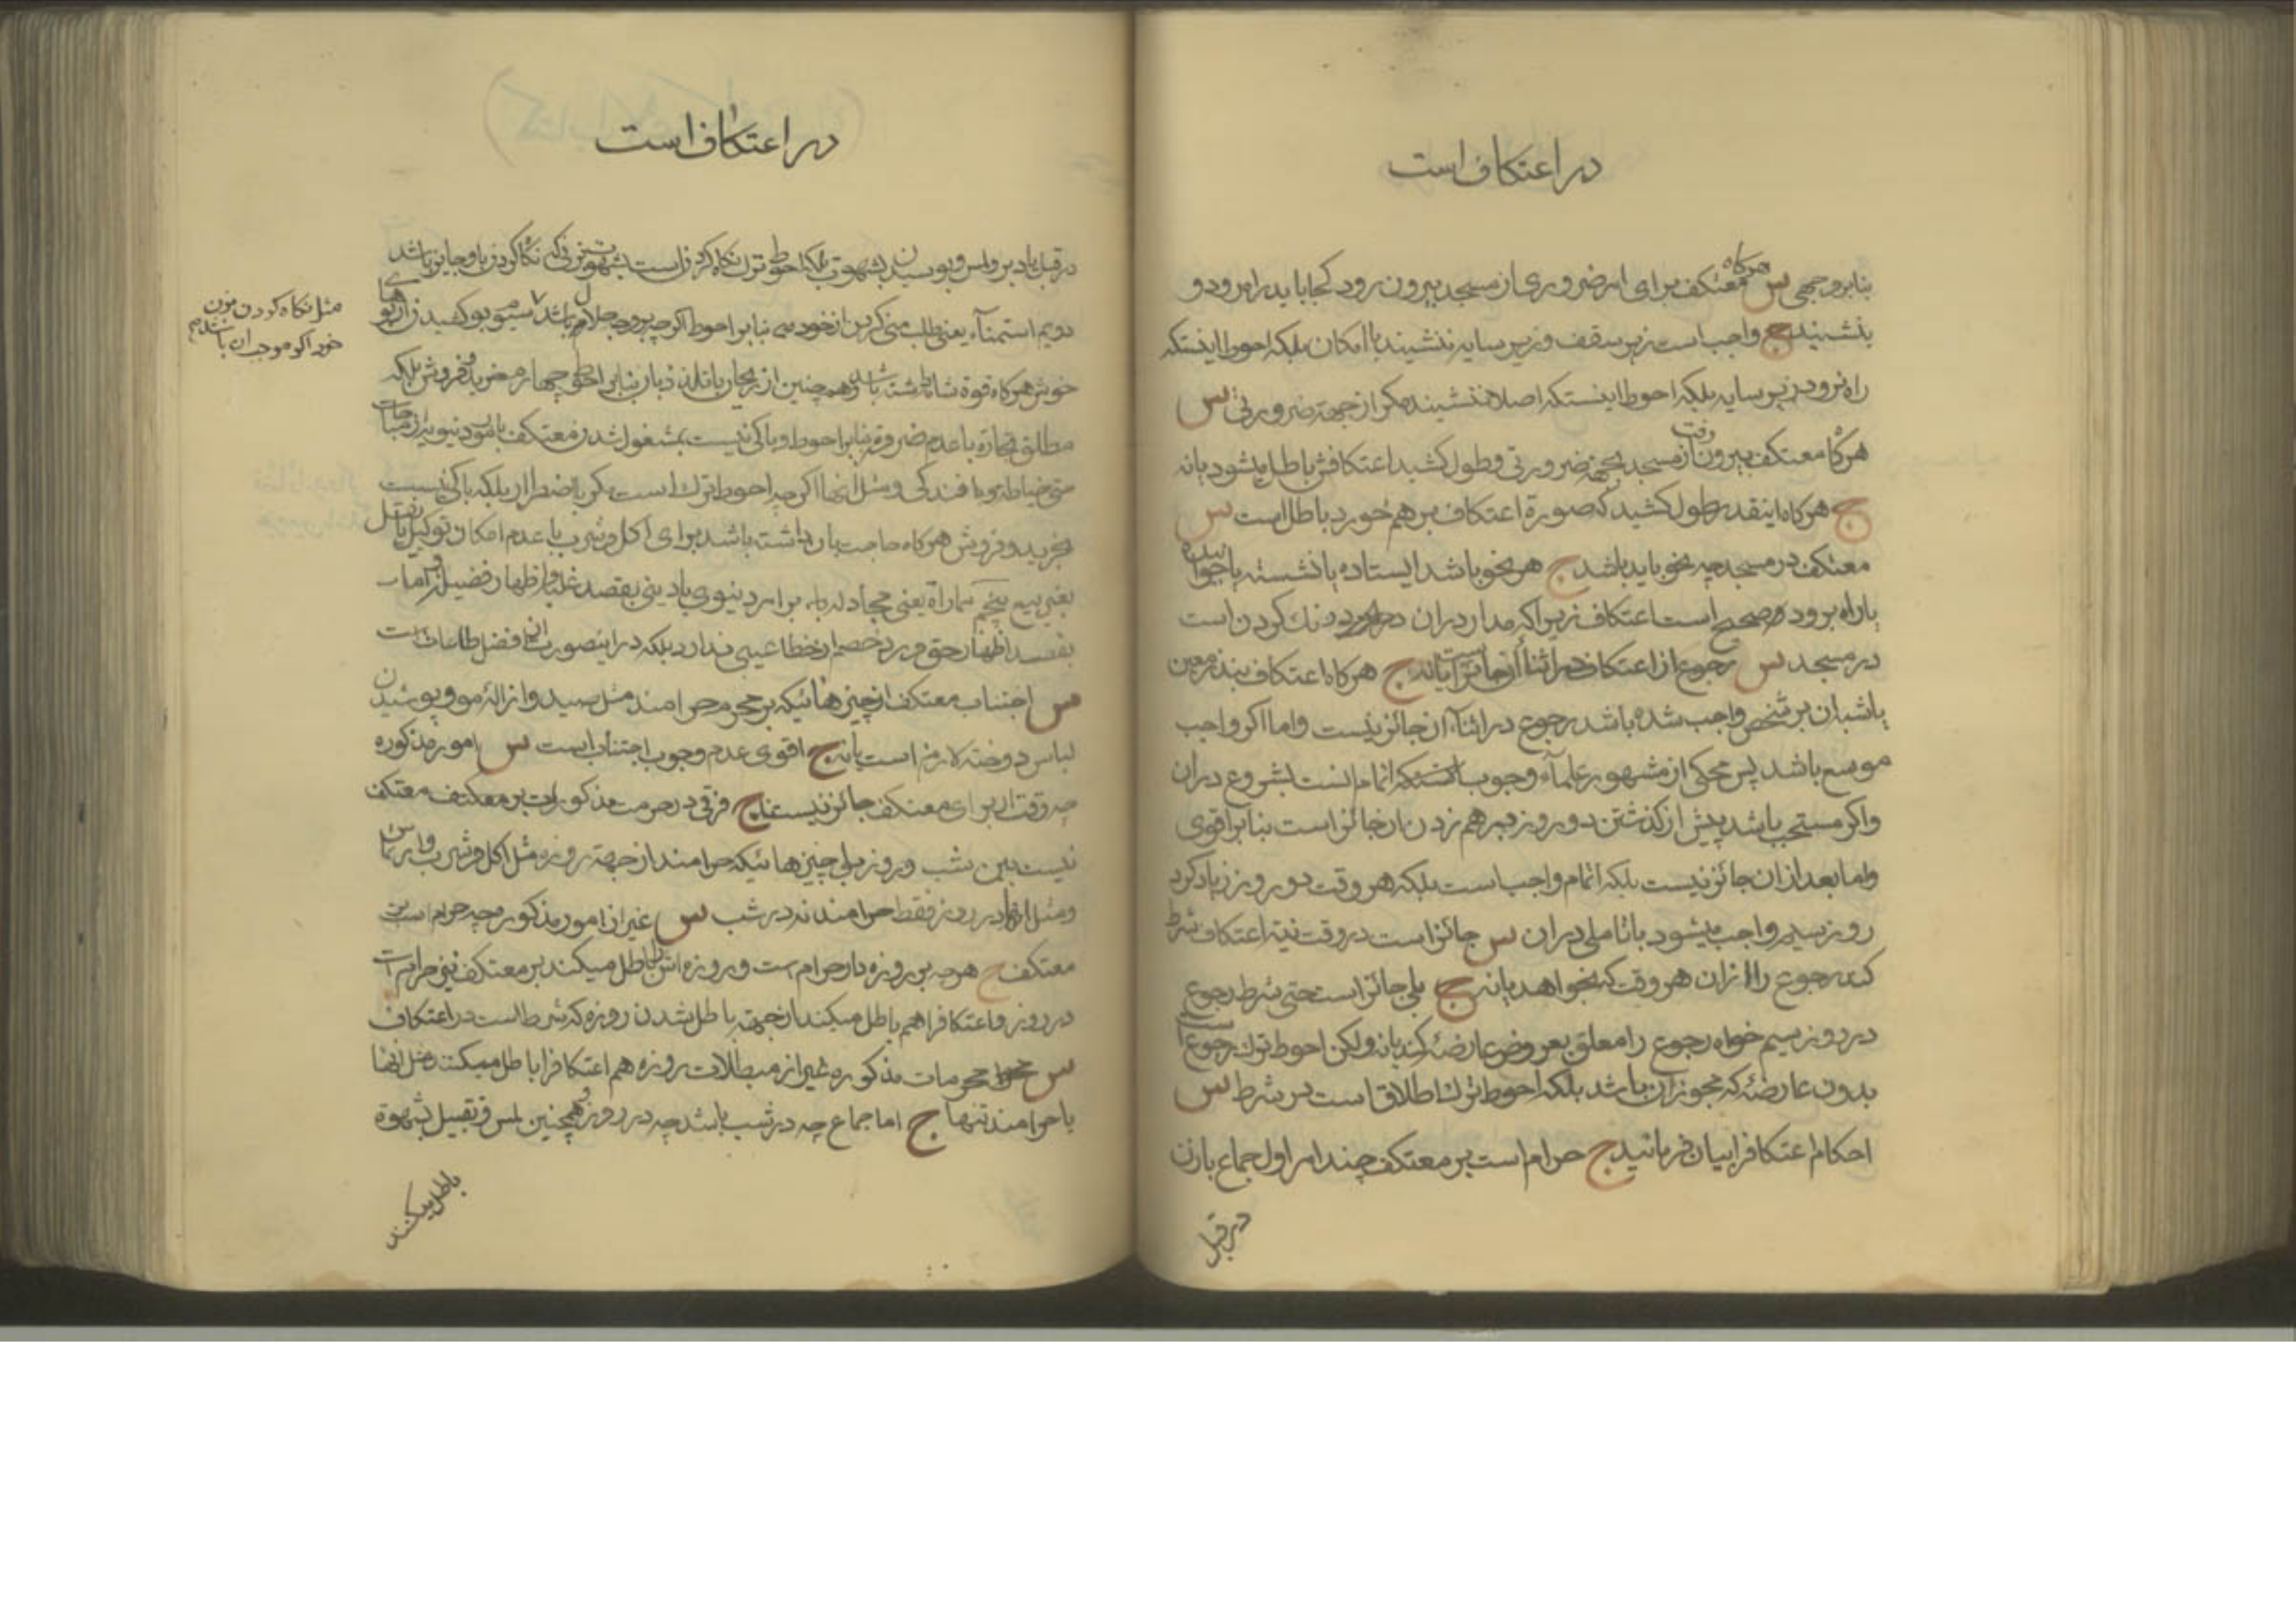 در اعتکاف است
بنابر وجهی س هرکاه معتکف برای امر ضروری از مسجد بیرون رود کجا باید راه رود و
بنشیند ج واجب است زیر سقف و زیر سایه ننشیند با امکان بلکه احوط اینستکه
راه نرود در زیر سایه بلکه احوط اینستکه اصلا ننشیند مکر از جهة ضرورتی س
هرکاه معتکف بیرون رفت از مسجد بجهة ضرورتی و طول کشید اعتکافش باطل میشود یا نه
ج هرکاه اینقدر طول کشید که صورة اعتکاف بر هم خورد باطل است س
معتکف در مسجد چه نحو باید باشد ج هر نحو باشد ایستاده یا نشسته یا خوابیده
یا راه برود صحیح است اعتکاف زیرا که مدار در ان درنك کردن است
در مسجد س رجوع از اعتکاف در اثنأ ان جایز است یا نه ج هرکاه اعتکاف بنذر معین
یا شبه ان بر شخص واجب شده باشد رجوع در اثنآء ان جائز نیست و اما اکر واجب
موسع باشد پس محکی از مشهور علمآء وجوب اتمام انست بشروع در ان
و اکر مستحب باشد پیش از کذشتن دو روز بر هم زدن ان جائز است بنابر اقوی
و اما بعد از ان جائز نیست بلکه اتمام واجب است بلکه هر وقت دو روز زیاد کرد
روز سیم واجب میشود با تاملی در ان س جائز است در وقت نیة اعتکاف شرط
کند رجوع را از ان هر وقت که بخواهد یا نه ج بلی جائز است حتی شرط رجوع
در روز سیم خواه رجوع را معلق بعروض عارضۀ کند یا نه ولکن احوط ترك رجوع است
بدون عارضۀ که مجوز ان باشد بلکه احوط ترك اطلاق است در شرط س
احکام اعتکاف را بیان فرمائید ج حرام است بر معتکف چند امر اول جماع با زن
در قبل
در اعتکاف است
در قبل یا دبر و لمس و بوسیدن بشهوت بلکه احوط ترك نکاه کردن است بشهوت بزنی که نکاه کردن باو جایز باشد
دویم استمنآء یعنی طلب منی کردن از خود بنابر احوط اکرچه بر وجه حلال باشد سیم بو کشیدن از بوهای
مثل نکاه کردن بزن
خود اکر موجب ان باشد
خوش هرکاه قوة شامه داشته باشد و همچنین از ریحان با تلذذ بان بنابر احوط چهارم خرید و فروش بلکه
مطلق تجارة با عدم ضرورة بنابر احوط و باکی نیست بمشغول شدن معتکف بامور دنیویه از مباحات
حتی خیاطة و بافندکی و مثل انها اکرچه احوط ترك است مکر باضطرار بلکه باکی نیست
بخرید و فروش هرکاه حاجت بان داشته باشد برای اکل و شرب با عدم امکان توکیل یا نقل
بغیر بیع پنجم مماراة یعنی مجادله بر امر دنیوی یا دینی بقصد غلبه و اظهار فضیلت و اما
بقصد اظهار حق و رد خصم از خطا عیبی ندارد بلکه در اینصورت از افضل طاعات است
س اجتناب معتکف از چیزهائیکه بر محرم حرامند مثل صید و ازالۀ مو و پوشیدن
لباس دوخته لازم است یا نه ج اقوی عدم وجوب اجتناب است س امور مذکوره
چه وقت از برای معتکف جائز نیست ج فرقی در حرمت مذکورات بر معتکف
نیست بین شب و روز بلی چیزهائیکه حرامند از جهة روزه مثل اکل و شرب و ارتماس
و مثل انها در روز فقط حرامند نه در شب س غیر از امور مذکوره چه حرام است بر
معتکف ج هر چه بر روزه دار حرام است و روزه اش را باطل میکند بر معتکف نیز حرام است
در روز و اعتکاف را هم باطل میکند از جهة باطل شدن روزه که شرط است در اعتکاف
س محرمات مذکوره غیر از مبطلات روزه هم اعتکاف را باطل میکند مثل انها
یا حرامند تنها ج اما جماع چه در شب باشد چه در روز و همچنین لمس و تقبیل بشهوة
باطل میکنند